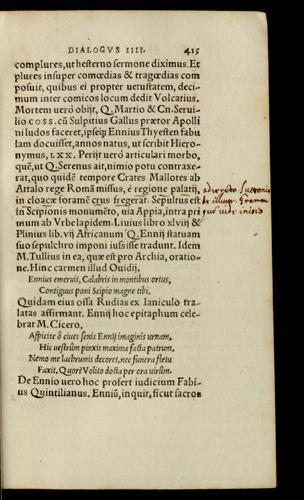 DIALOGVS IIII. 415
complures, ut hesterno sermone diximus. Et
plures insuper comœdias & tragœdias com
posuit, quibus ei propter uetustatem, deci-
mum inter comicos locum dedit Volcatius.
Mortem uerò obijt, Q. Martio & Cn. Serui-
lio COSS. cũ Sulpitius Gallus prætor Apolli
ni ludos faceret, ipseq; Ennius Thyesten fabu
lam docuisset, annos natus, ut scribit Hiero-
nymus, LXX. Perijt uerò articulari morbo,
quẽ, ut Q. Serenus ait, nimio potu contraxe-
rat, quo quidẽ tempore Crates Mallotes ab
Attalo rege Romã missus, è regione palatij,
in cloacæ foramẽ crus fregerat. Sepultus est
in Scipionis monumẽto, uia Appia, intra pri
mum ab Vrbe lapidem. Liuius libro xlviij &
Plinius lib. vij Africanum Q. Ennij statuam
suo sepulchro imponi iussisse tradunt. Idem
M. Tullius in ea, quæ est pro Archia, oratio-
ne. Hinc carmen illud Ouidij.
Ennius emeruit, Calabris in montibus ortus,
Contiguus poni Scipio magne tibi.
Quidam eius ossa Rudias ex Ianiculo tra-
latas affirmant. Ennij hoc epitaphum cele-
brat M. Cicero,
Aspicite ô ciues senis Ennij imaginis urnam,
Hic uestrûm pinxit maxima facta patrum.
Nemo me lachrumis decoret, nec funera fletu
Faxit, Quor? Volito docta per ora uirûm.
De Ennio uero hoc profert iudicium Fabi-
us Quintilianus. Enniũ, inquit, sicut sacros